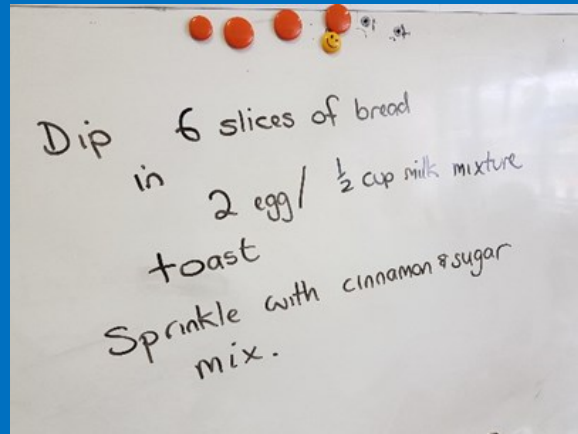 Dip 6 slices of bread
in
2 egg/ 1/2 cup milk mixture
toast
Sprinkle with cinnamon & sugar
mix.